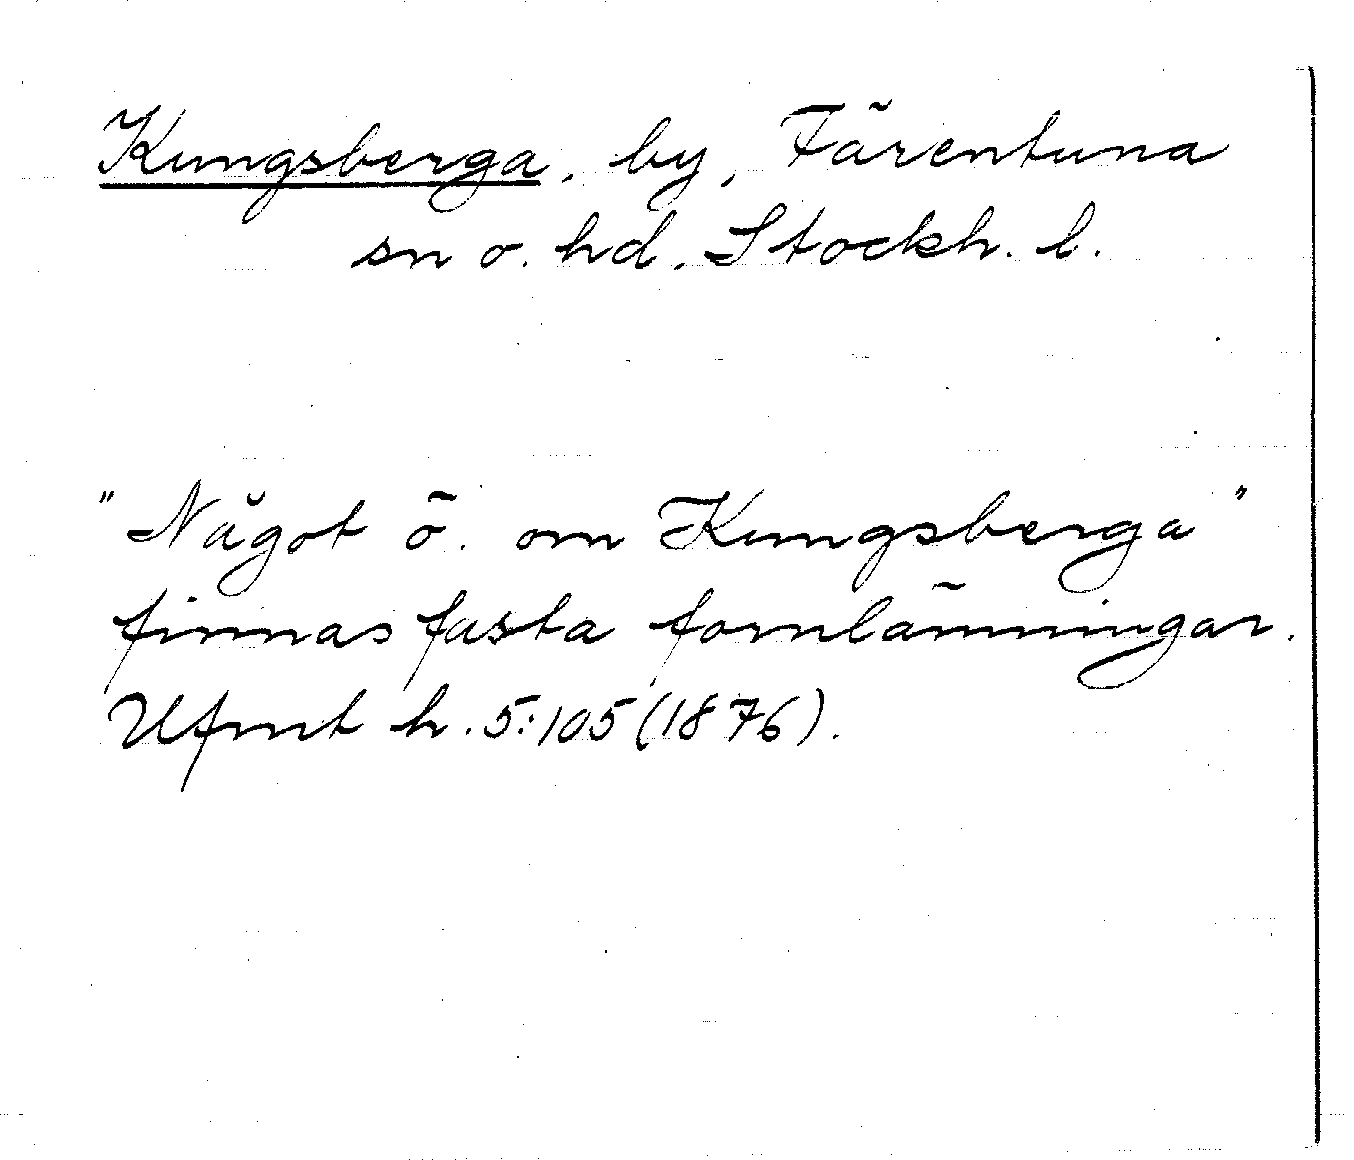 Kungsberga, by, Färentuna
sn o. hd. Stockh. l.
"Något ö. om Kungsberga"
finnas fasta fornlämningar.
Ufmt h. 5:105 (1876).